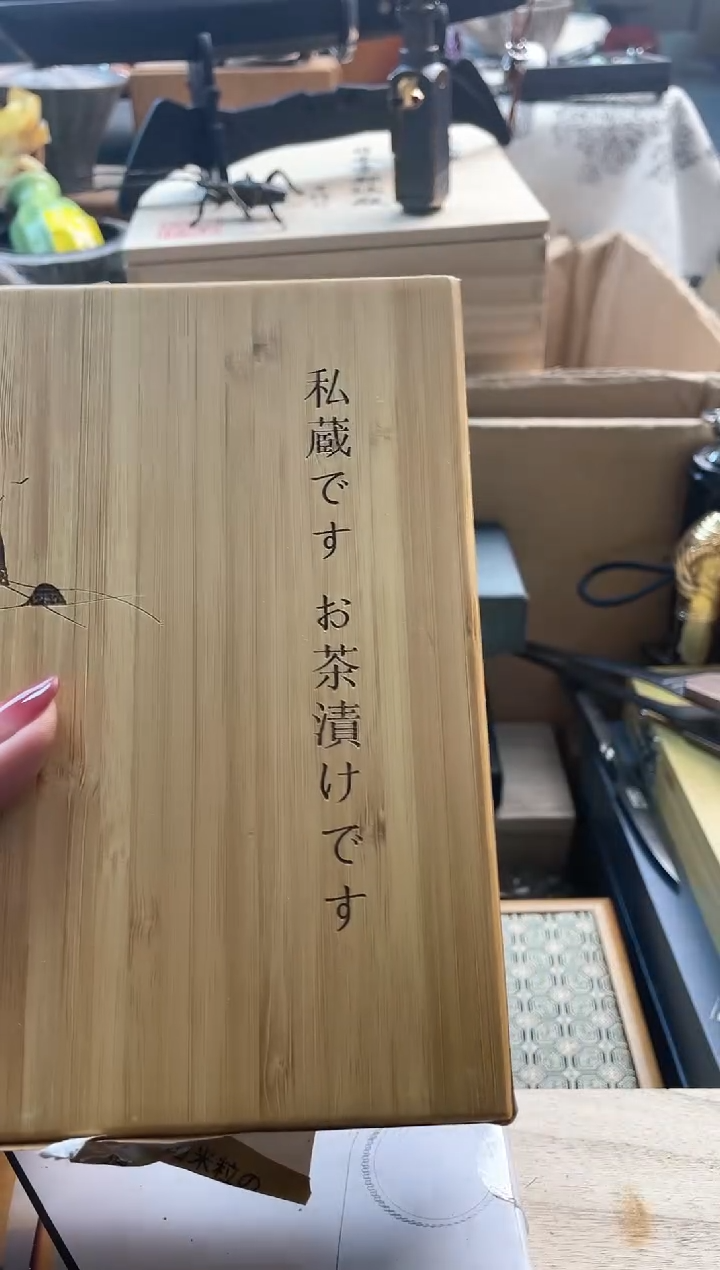 私蔵です お茶漬けです
米粒の